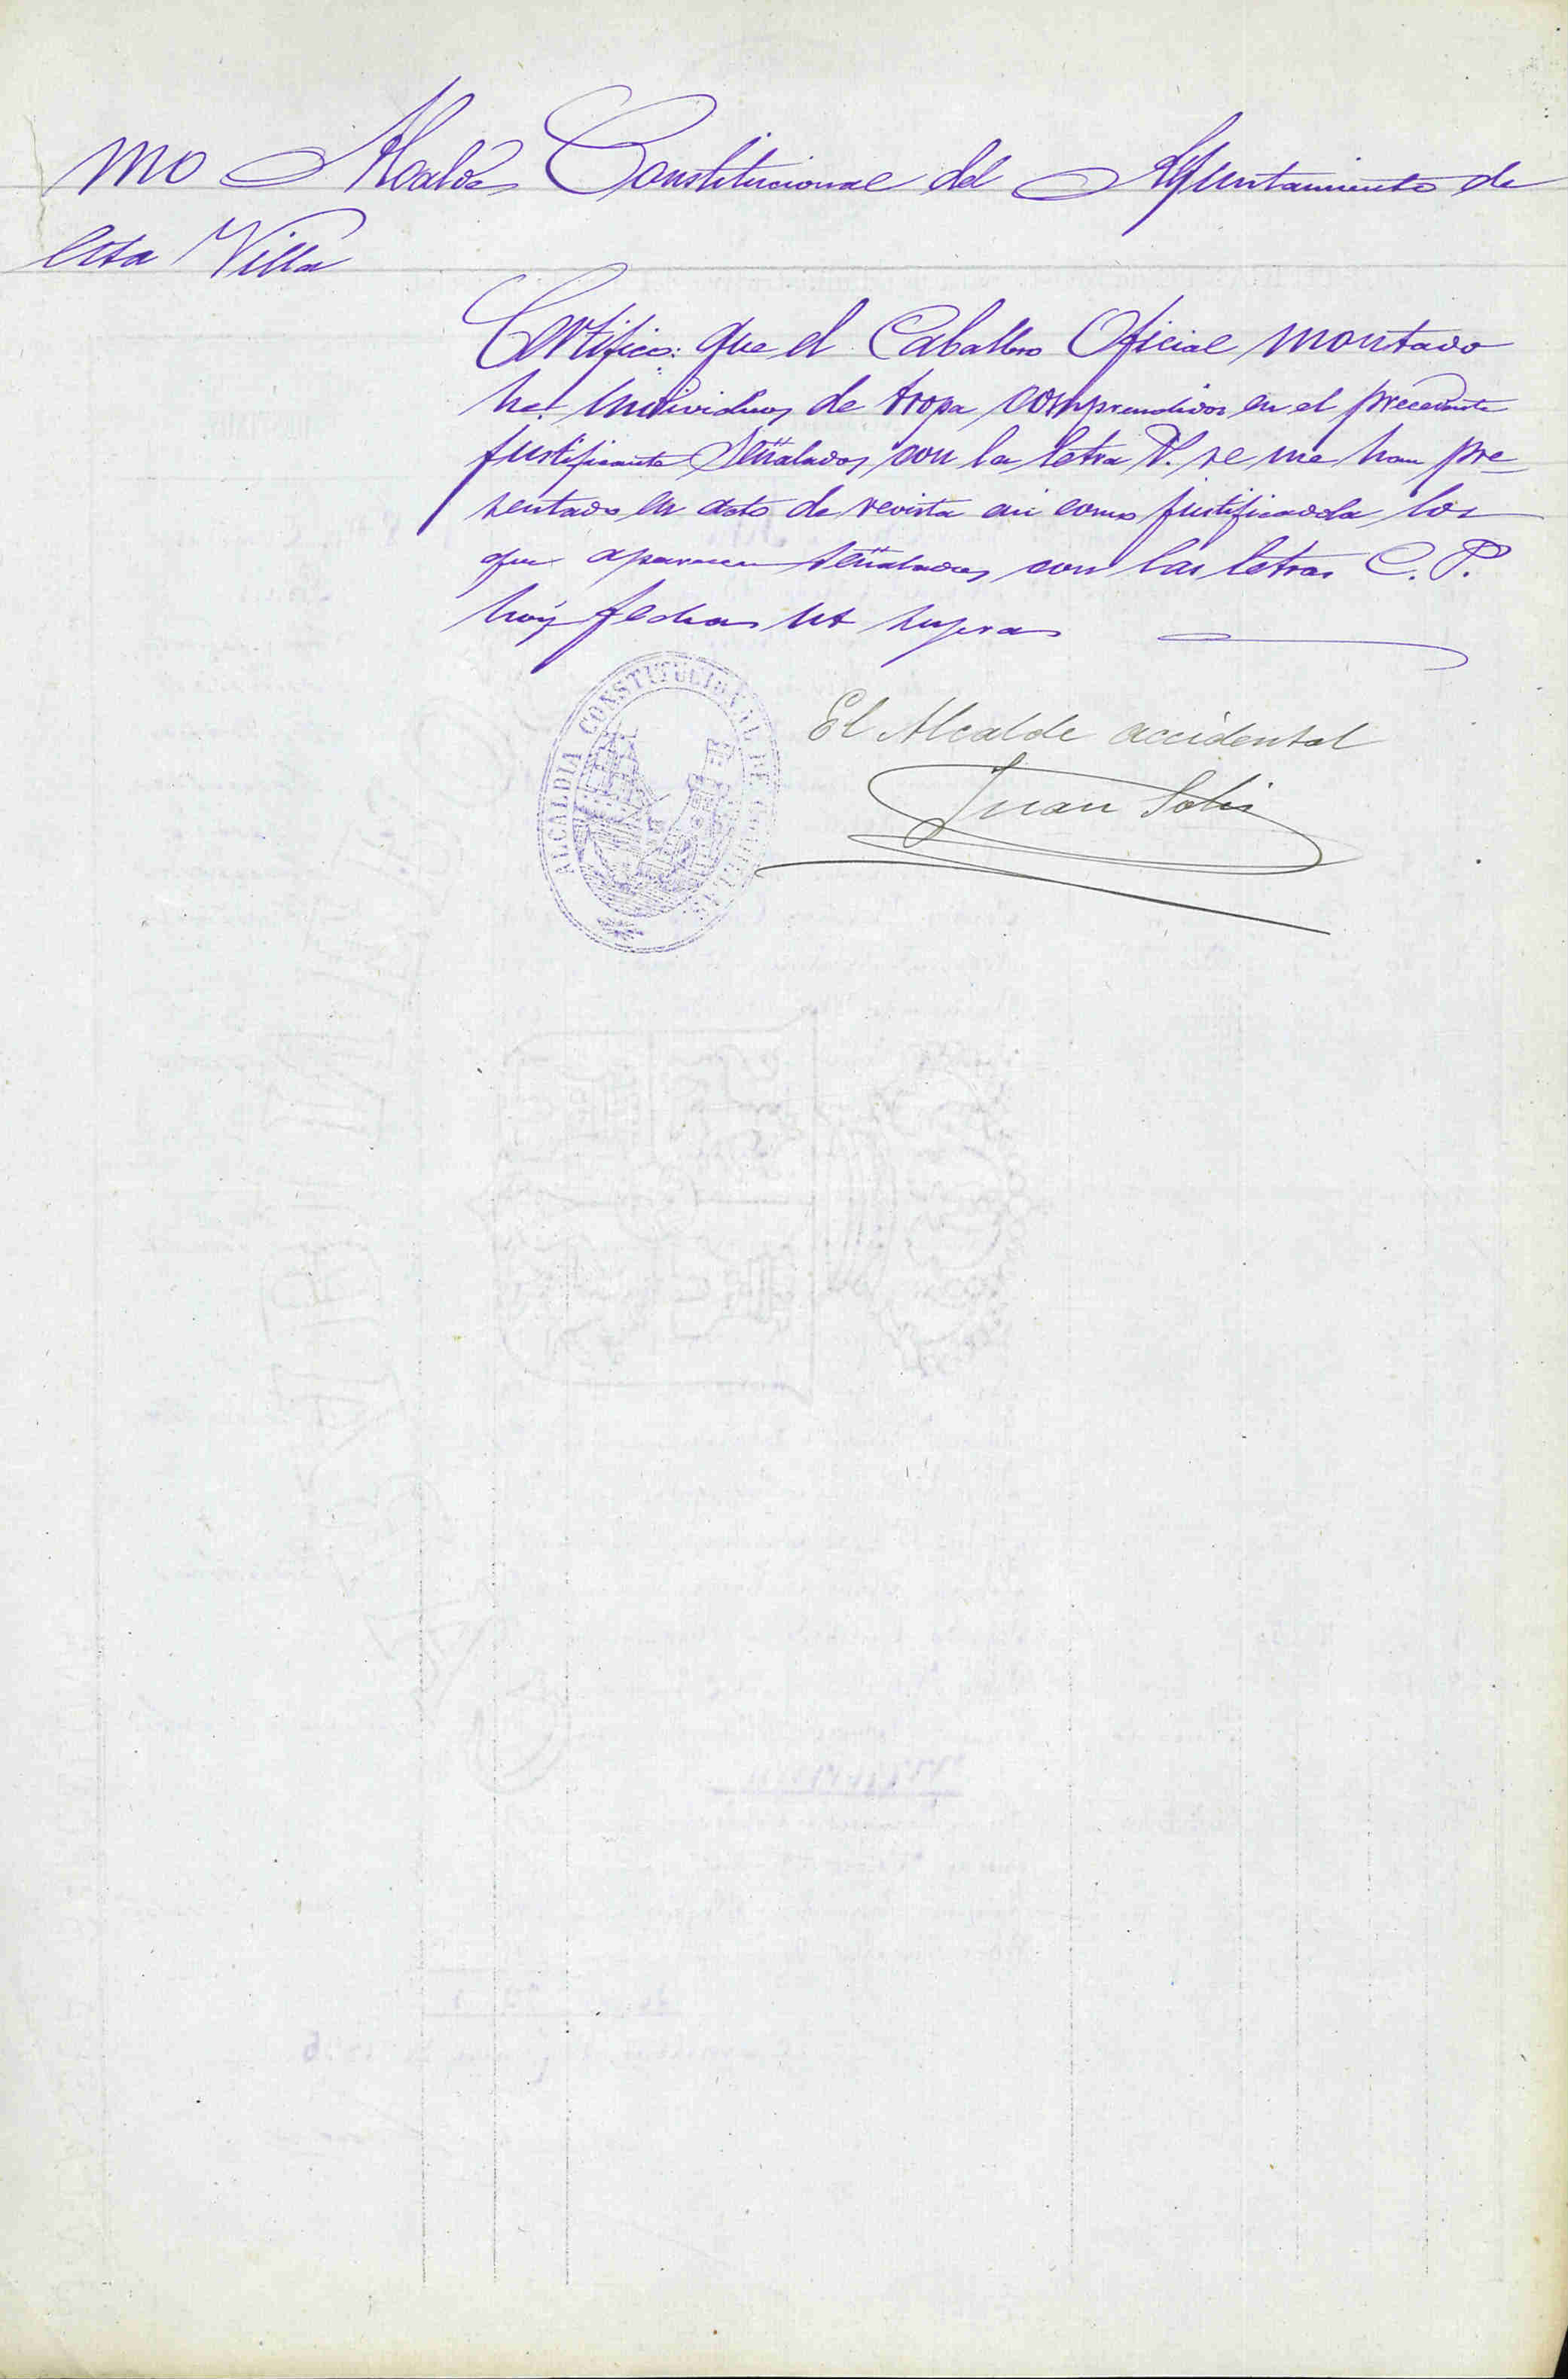 Mo Alcalde Constitucional del Ayuntamiento de
esta Villa
Certifico: que el Caballero Oficial montado
he individuos de tropa comprendidos en el precedente
justificante señalados con la letra P. se me han pre-
sentado en acto de revista asi como justificado los
que aparecen señalados con las letras C. P.
hoy fecha ut supra
ALCALDIA CONSTITUCIONAL DE
El Alcalde accidental
Juan Solis